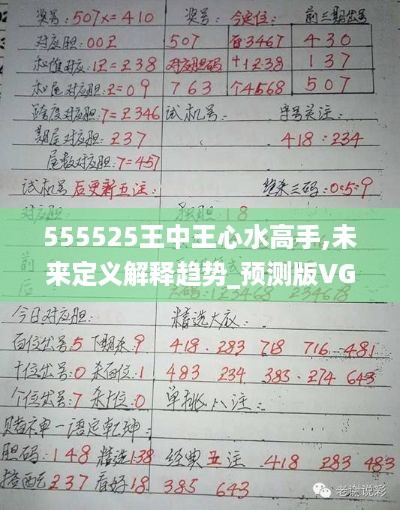 奖号:507x=410 奖号: 今定位: 前三期奖号
对应胆:002 507 百3467 430
和值对应:12=238 对应胆码 +1238 137
和尾对应胆:2=09 763 个4568 507
跨度对应胆:7=2346 试机号: 序号关注:
期尾对应胆:237 418:234
尾数对应胆:7=457
试机号后更新五注: 三码:0:5:9
独胆:18
555525王中王心水高手,未
来定义解释趋势_预测版VG
今日对应胆: 精选大底:
百位奖号5下期来9 418.283 718 716.481
十位奖号:0来百位:1 483 234 385.274 643
个位奖号:7来十位:0 单挑八注:
赌不单一语定乾坤:
胆码:148精选138 经典五注 418 283 483
237看好18 385 643
老谢说彩